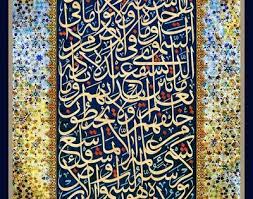 تأخذه سنة ولا نوم له ما في
السموات وما في الأرض من
ذا الذي يشفع عنده إلا بإذنه
يعلم ما بين أيديهم وما
خلفهم ولا يحيطون
بشيء من علمه إلا بما شاء وسع
كرسيه السموات والأرض